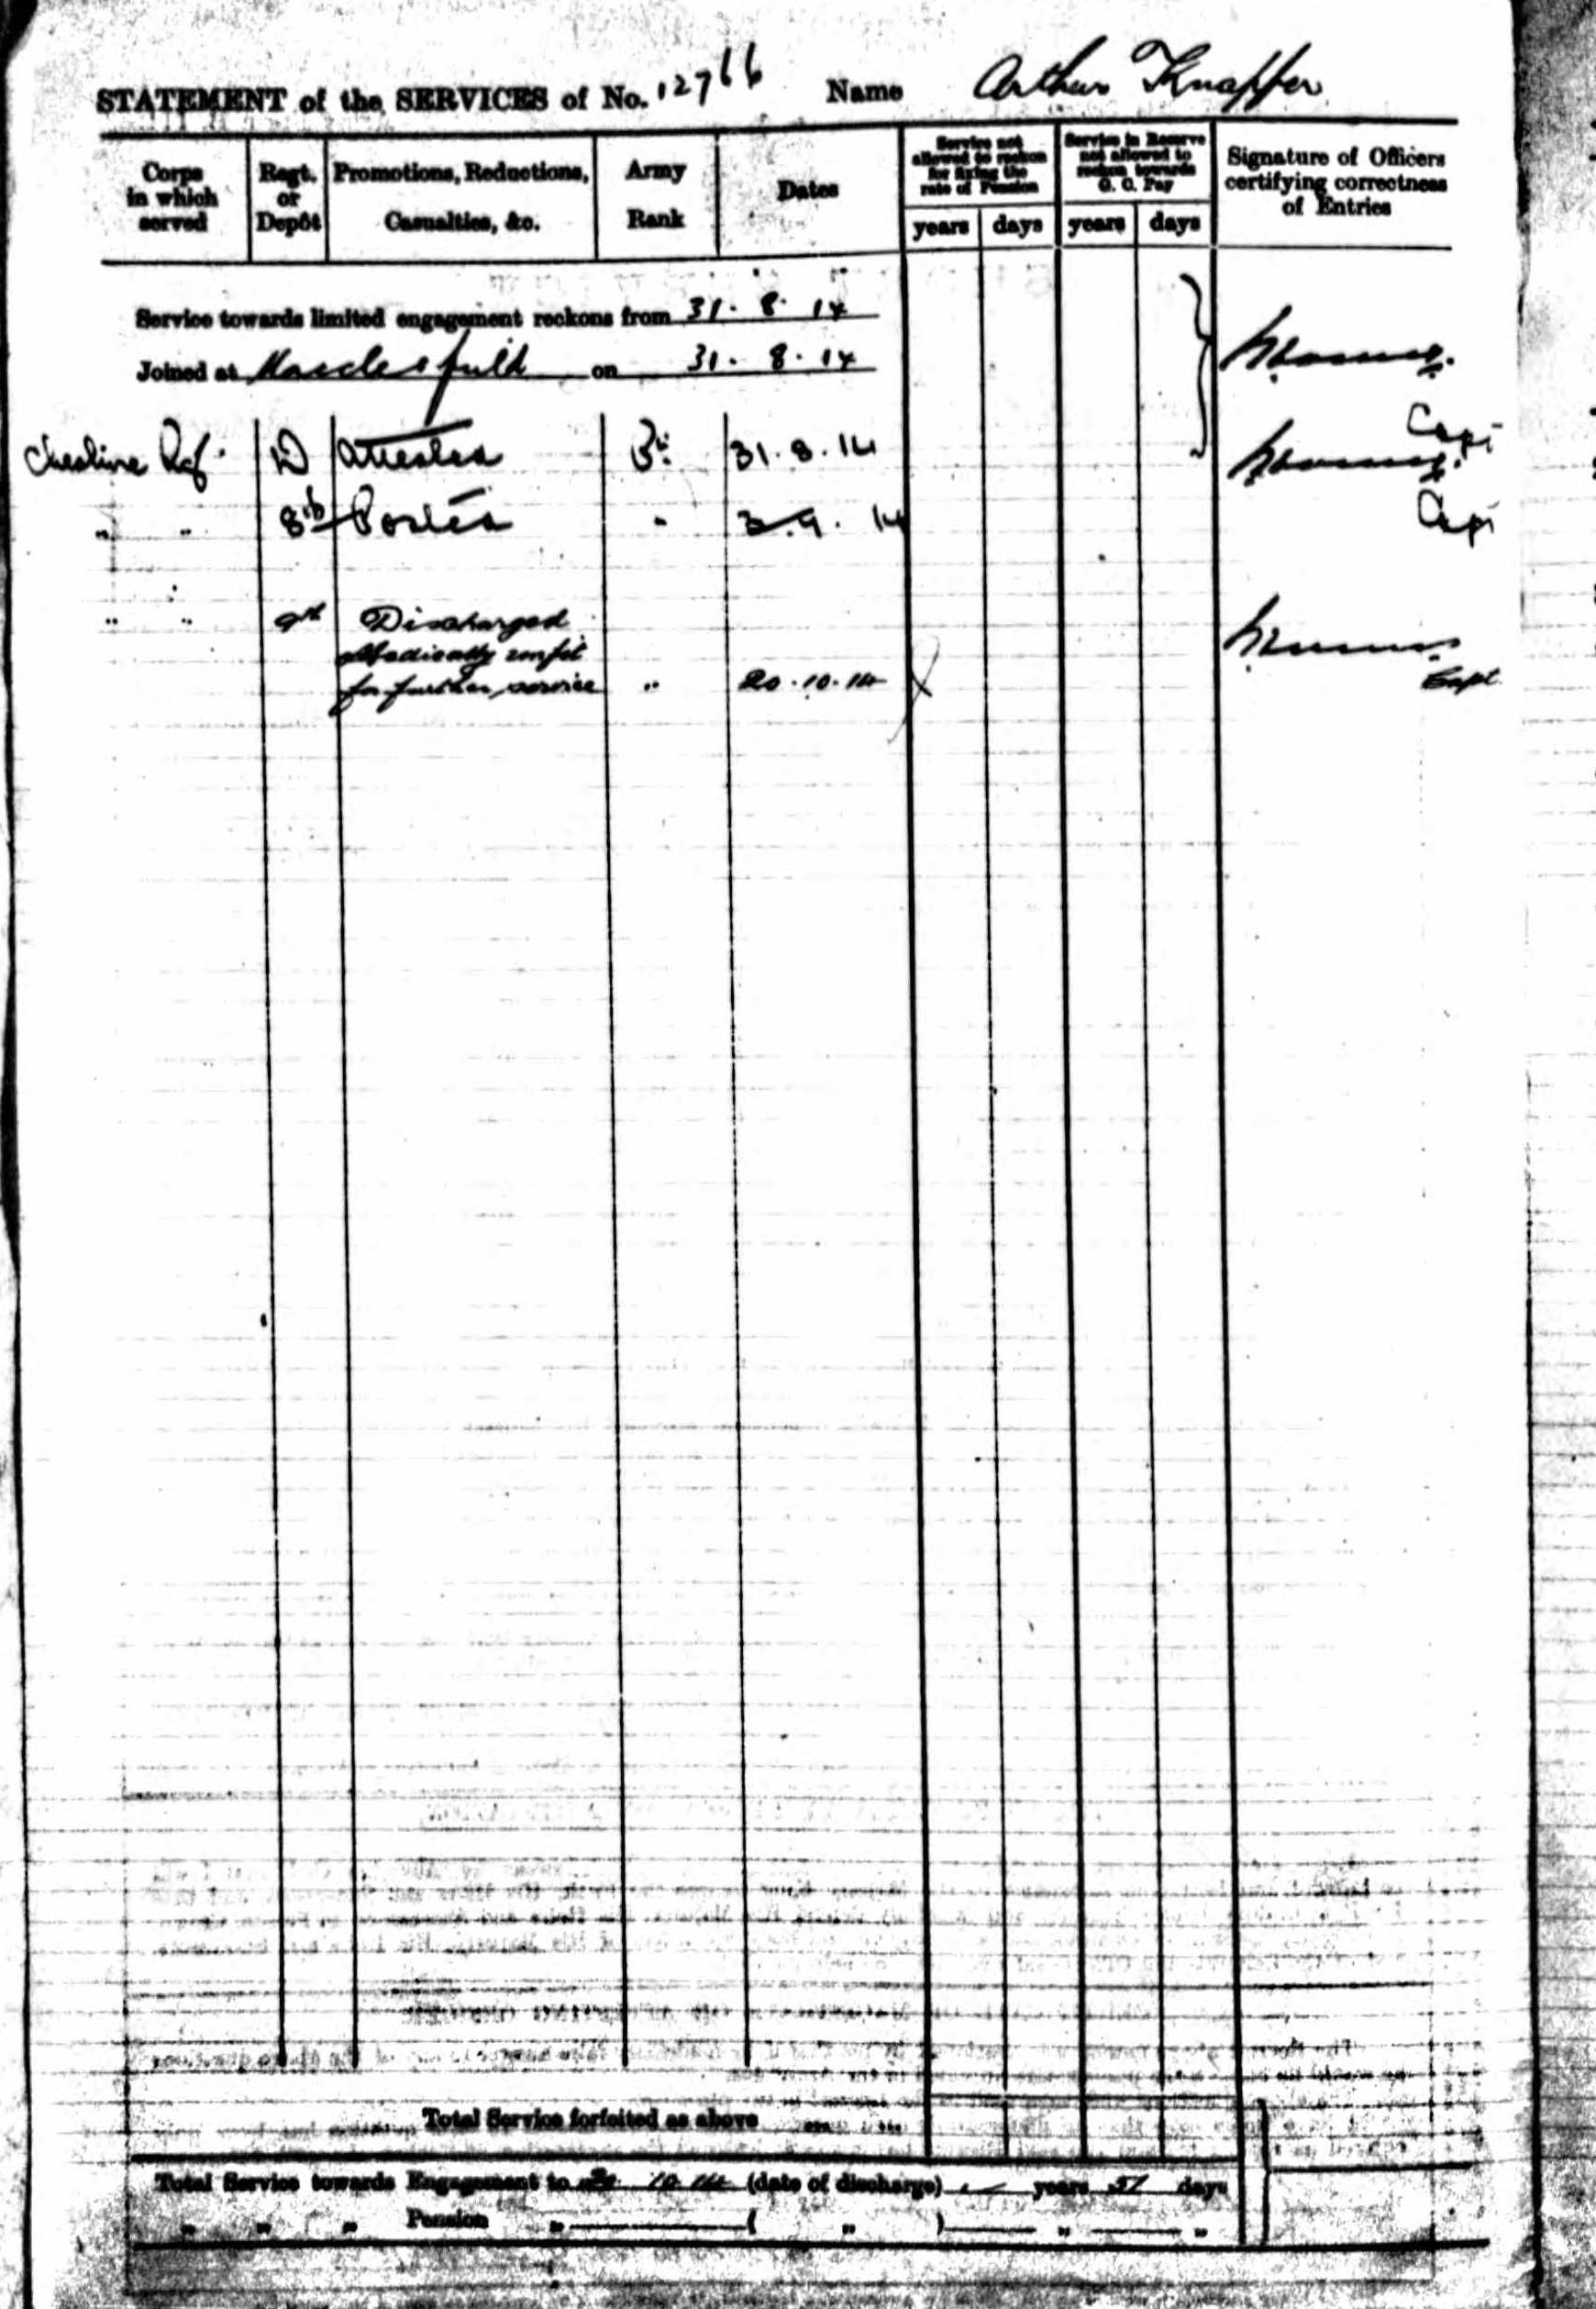 STATEMENT of the SERVICES of No. 12766 Name Arthur Knapper
Corps in which served
Regt. or Depôt
Promotions, Reductions, Casualties, &c.
Army Rank
Dates
Service not allowed to reckon for fixing the rate of Pension
years days
Service in Reserve not allowed to reckon towards G. C. Pay
years days
Signature of Officers certifying correctness of Entries
Service towards limited engagement reckons from 31. 8. 14
Joined at Macclesfield on 31. 8. 14
Capt
Cheshire Rgt D Attested Pte 31.8.14
Capt
" " 8th Posted " 3.9.14
" " 9th Discharged
Medically unfit
for further service " 20.10.14
Capt.
Total Service forfeited as above ... ...
Total Service towards Engagement to 20 10 14 (date of discharge) — years 51 days
" " " Pension " ( " ) " "